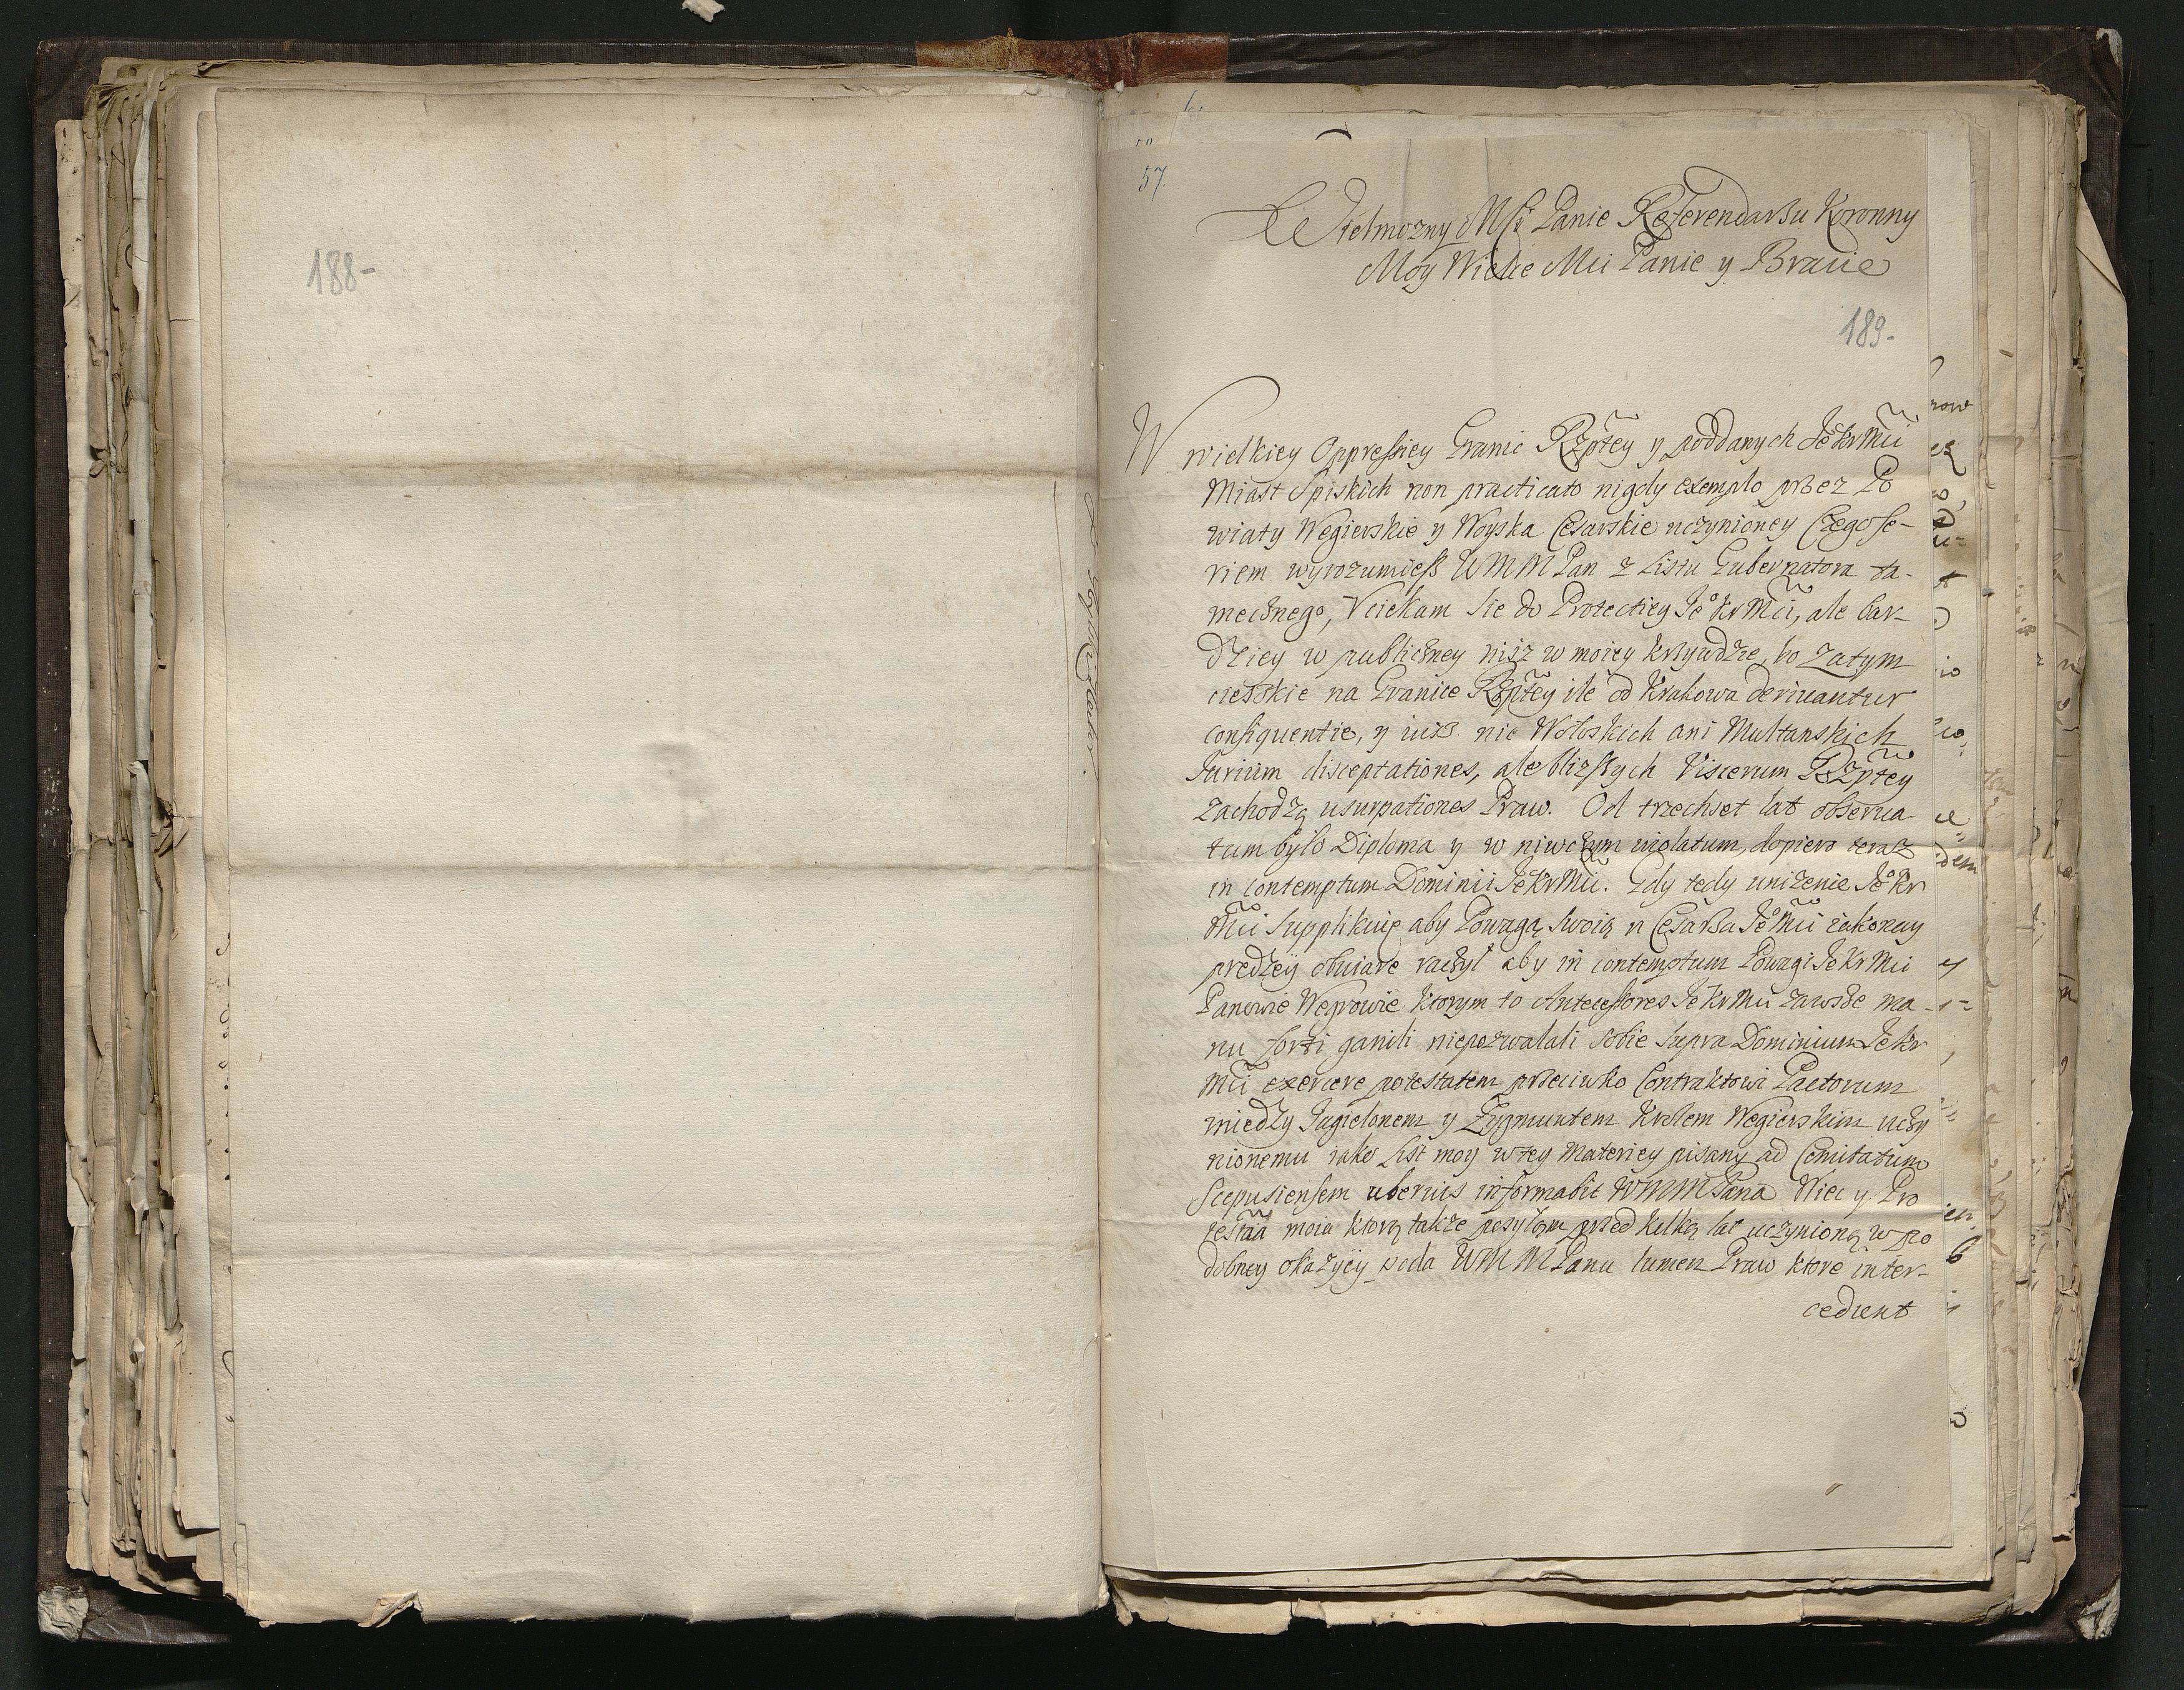 188-
57.
Wielmozny Mſci Panie Referendarzu Koronny
Moy Wielce Mci Panie y Bracie
189-
W wielkiey Oppreſsiey Granic Rzptey y poddanych Je͠º Kr Mci
Miast Spiskich non practicato nigdy exemplo przez Po
wiaty Węgierskie y Woyska Cesarskie uczynioney Czego se-
riem wyrozumiesz WMM Pan z Listu Gubernatora ta-
mecznego, Vciekam się do Protectiey Jeº Kr Mci, ale bar-
dziey w publiczney nisz w moiey krzywdzie, bo zatym
ciezskie na Granice Rzptey ile od Krakowa deriuantur
consiquentie, y iusz nie Wołoskich ani Multanskich
Jurium disceptationes, ale blizszych Viscerum Rzptey
zachodzą usurpationes Praw. Od trzechset lat obserua-
tum było Diploma y w niwczym violatum, dopiero teraz
in contemptum Dominii Je Kr Mci. Gdy tedy unizenie Jeº Kr
Mci supplikuię aby Powagą swoią u Cesarza Jeº Mci iakonay
prędzey obuiare raczył aby in contemptum Powagi Je Kr Mci
Panowie Węgrowie ktorym to Anteceſsores Je Kr Mci zawsze ma-
nu forti ganili niepozwalali sobie supra Dominium Je Kr
Mci exercere potestatem przeciwko Contraktowi Pactorum
miedzy Jagielonem y Zygmuntem Krolem Węgierskim uczy
nionemu iako List moy w tey materiey pisany ad Comitatum
Scepusiensem uberius informabit WMM Pana Wiec y Pro
testa͠a moia ktorą także posyłam przed kilką lat uczynioną w po
dobney okazyiy poda WMM Panu lumen Praw ktore inter-
cedunt